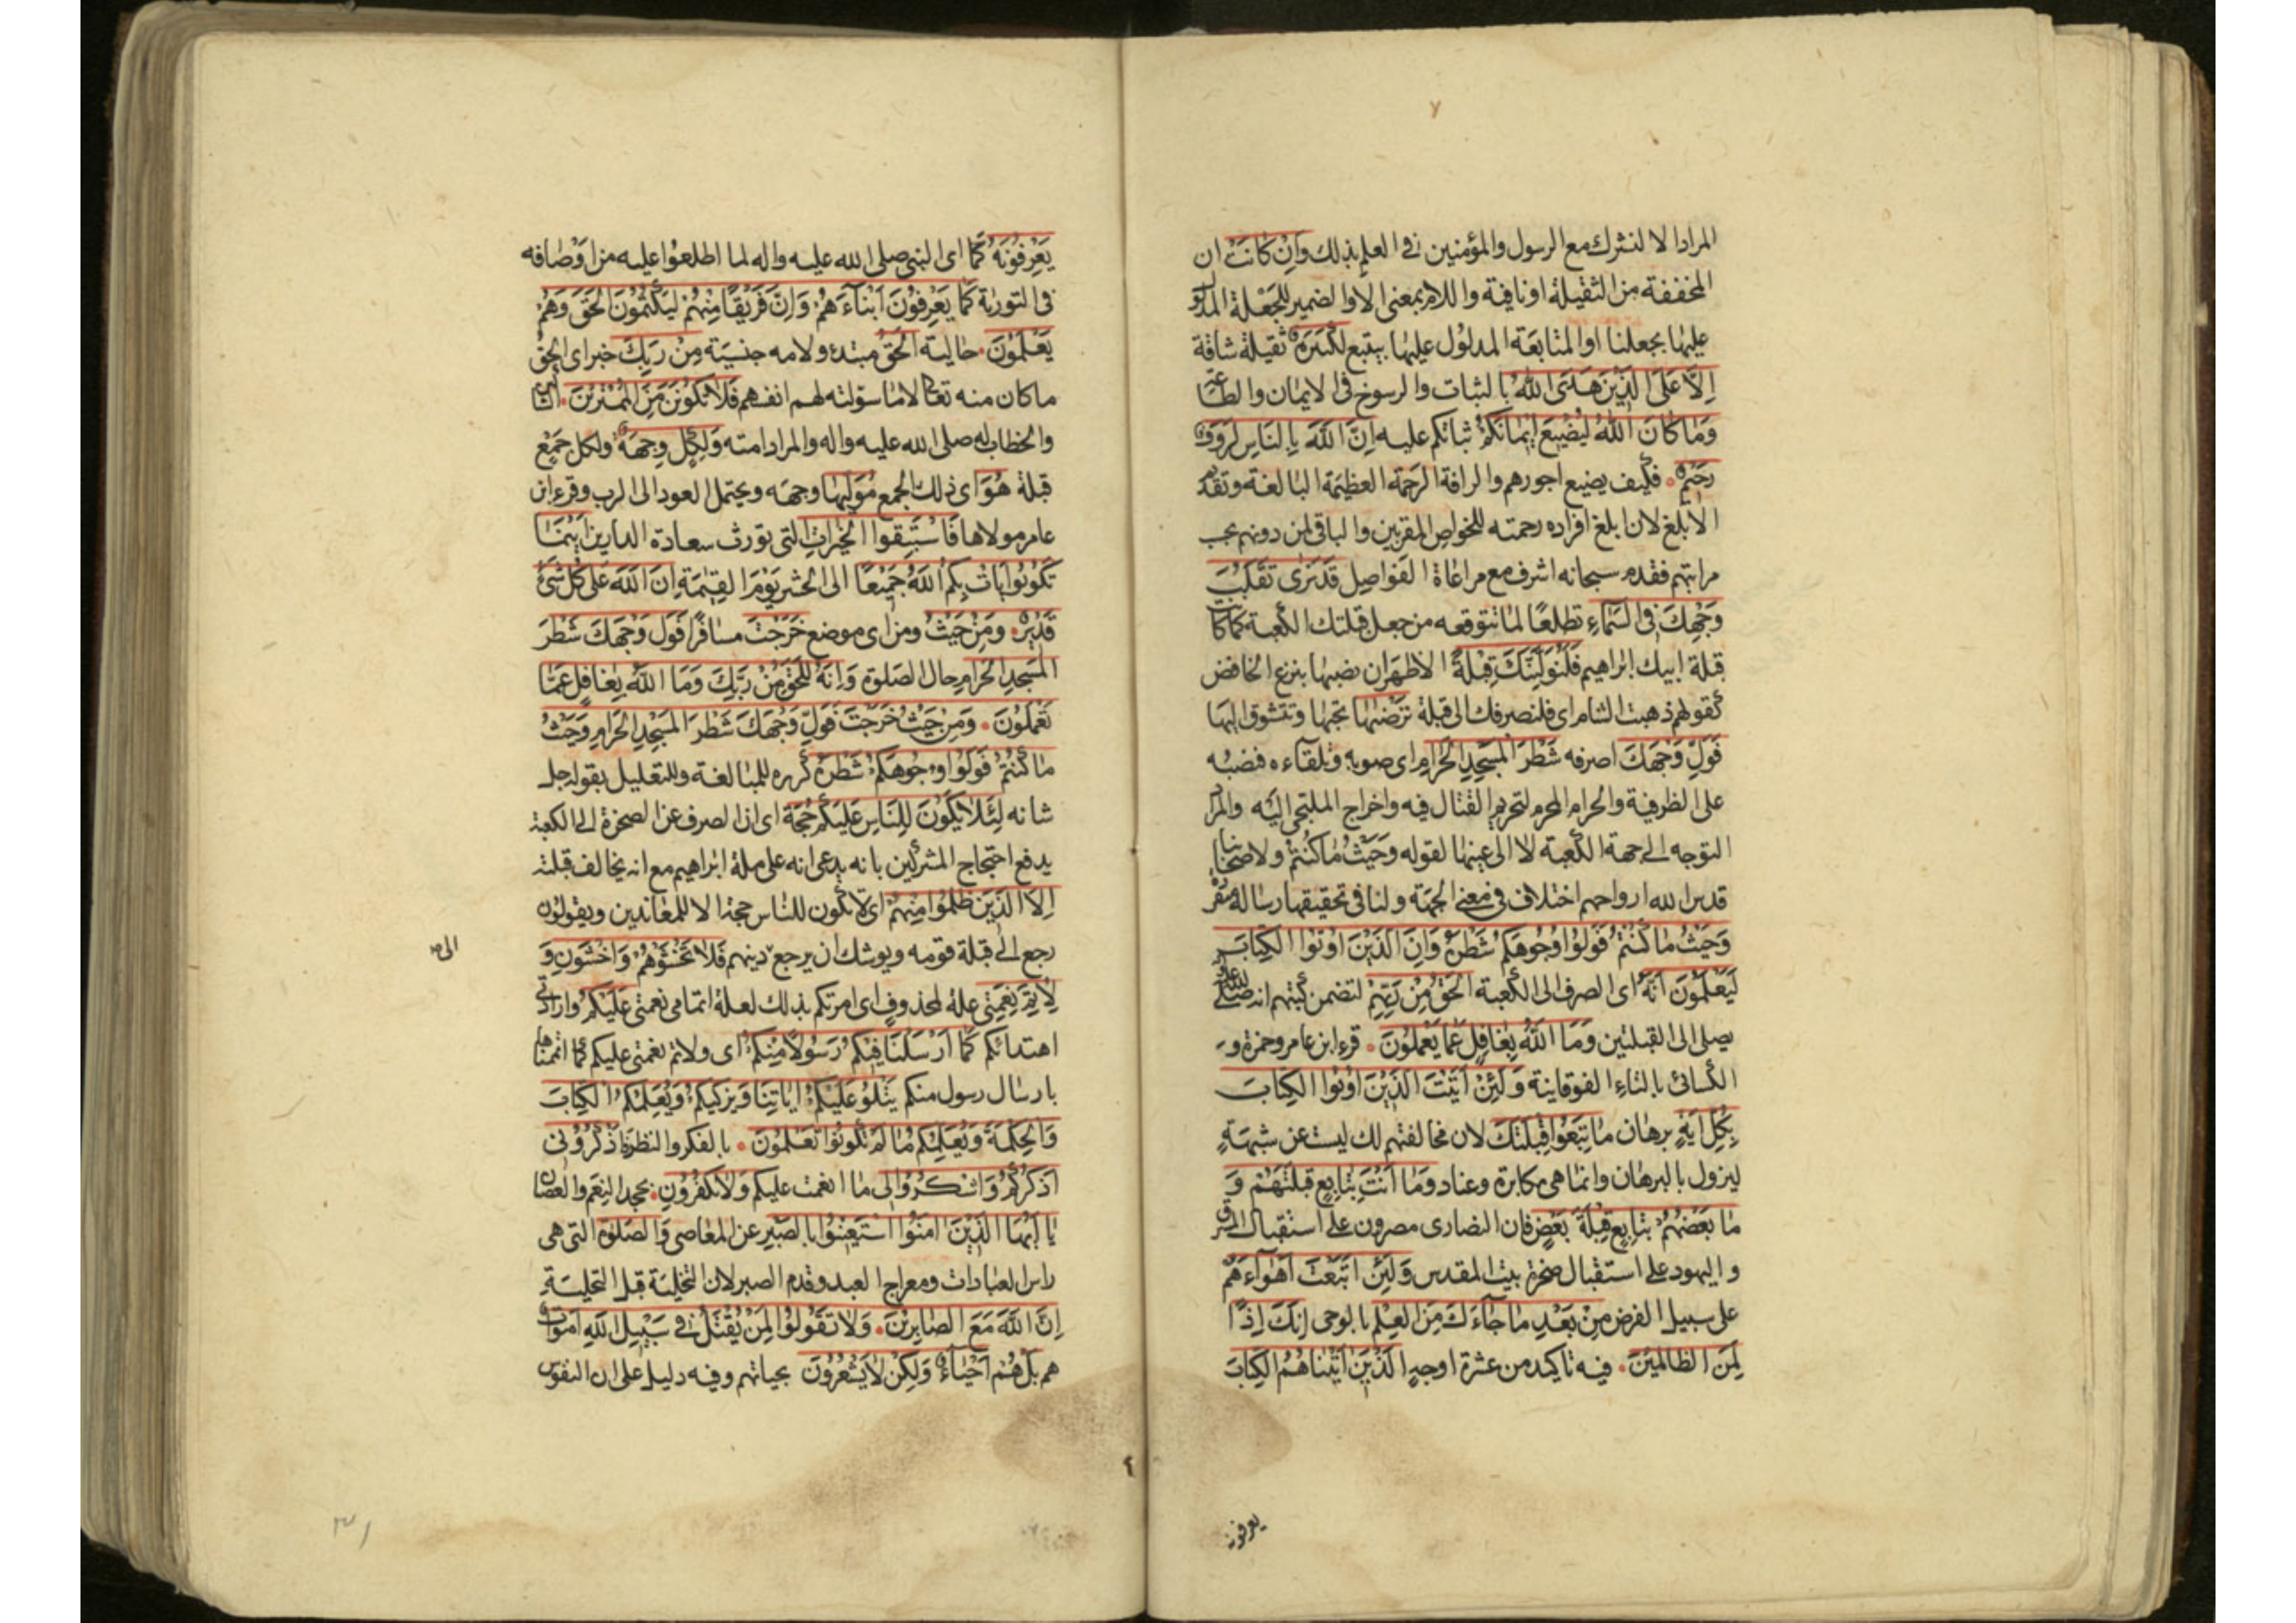 المراد الا لنشرك مع الرسول والمؤمنين في العلم بذلك وَاِنْ كَانَتْ ان
المخففة من الثقيلة او نافية واللام بمعنى الا والضمير للجعلة المدلول
عليها بجعلنا او المتابعة المدلول عليها بيتبع لَكَبيرَةً ثقيلة شاقة
اِلَّا عَلَى الَّذينَ هَدَى اللهُ بالثبات والرسوخ في الايمان والطاعة
وَمَا كَانَ اللهُ لِيُضيعَ ايمَانَكُمْ ثباتكم عليه اِنَّ اللهَ بِالنَّاسِ لَرَؤُفٌ
رَحيمٌ فكيف يضيع اجورهم والرافة الرحمة العظيمة البالغة وتقديم
الابلغ لان ابلغ افراده رحمته للخواص المقربين والباقي لمن دونهم بحسب
مراتبهم فقدم سبحانه اشرف مع مراعاة الفواصل قَدْ نَرى تَقَلُّبَ
وَجْهِكَ فِي السَّمَاءِ تطلعا لما تتوقعه من جعل قبلتك الكعبة كما كانت
قبلة ابيك ابراهيم فَلَنُوَلِّيَنَّكَ قِبْلَةً الاظهر ان نصبها بنزع الخافض
كقولهم ذهبت الشام اي فلنصرفك الى قبلة تَرْضيهَا تحبها وتتشوق اليها
فَوَلِّ وَجْهَكَ اصرفه شَطْرَ الْمَسْجِدِ الْحَرَامِ اي صوبه وتلقاءه فنصبه
على الظرفية والحرام المحرم لتحريم القتال فيه واخراج الملتجى اليه والمراد
التوجه الى جهة الكعبة لا الى عينها لقوله وَحَيْثُ مَا كُنْتُمْ ولاصحابنا
قدس الله ارواحهم اختلاف في معنى الجهة ولنا في تحقيقها رسالة مفردة
وَحَيْثُ مَا كُنْتُمْ فَوَلُّوا وُجُوهَكُمْ شَطْرَهُ وَاِنَّ الَّذينَ اُوتُوا الْكِتَابَ
لَيَعْلَمُونَ اَنَّهُ اي الصرف الى الكعبة الْحَقُّ مِنْ رَبِّهِمْ لتضمن كتبهم انه صلى الله عليه واله
يصلي الى القبلتين وَمَا اللهُ بِغَافِلٍ عَمَّا يَعْمَلُونَ قرء ابن عامر وحمزة و
الكسائي بالتاء الفوقانية وَلَئِنْ اَتَيْتَ الَّذينَ اُوتُوا الْكِتَابَ
بِكُلِّ ايَةٍ برهان مَا تَبِعُوا قِبْلَتَكَ لان مخالفتهم لك ليست عن شبهة
ليزول بالبرهان وانما هي مكابرة وعناد وَمَا اَنْتَ بِتَابِعٍ قِبْلَتَهُمْ وَ
مَا بَعْضُهُمْ بِتَابِعٍ قِبْلَةَ بَعْضٍ فان النصارى مصرون على استقبال الشرق
واليهود على استقبال صخرة بيت المقدس وَلَئِنِ اتَّبَعْتَ اَهْوَاءَهُمْ
على سبيل الفرض مِنْ بَعْدِ مَا جَاءَكَ مِنَ الْعِلْمِ بالوحي اِنَّكَ اِذًا
لَمِنَ الظَّالِمينَ فيه تاكيد من عشرة اوجه الَّذينَ اتَيْنَاهُمُ الْكِتَابَ
يعرفونه
يَعْرِفُونَهُ كَمَا اي النبي صلى الله عليه واله لما اطلعوا عليه من اوصافه
في التورية كَمَا يَعْرِفُونَ اَبْنَاءَهُمْ وَاِنَّ فَريقًا مِنْهُمْ لَيَكْتُمُونَ الْحَقَّ وَهُمْ
يَعْلَمُونَ حالية اَلْحَقُّ مبتدء ولامه جنسية مِنْ رَبِّكَ خبر اي الحق
ما كان منه تعالى لا ما سولته لهم انفسهم فَلَا تَكُونَنَّ مِنَ الْمُمْتَرينَ الشاكين
والخطاب له صلى الله عليه واله والمراد امته وَلِكُلٍّ وِجْهَةٌ ولكل جمع
قبلة هُوَ اي ذلك الجمع مُوَلّيهَا وجهه ويحتمل العود الى الرب وقرء ابن
عامر مولاها فَاسْتَبِقُوا الْخَيْرَاتِ التي تورث سعادة الدارين اَيْنَمَا
تَكُونُوا يَأْتِ بِكُمُ اللهُ جَميعًا الى الحشر يوم القيمة اِنَّ اللهَ عَلى كُلِّ شَيْءٍ
قَديرٌ وَمِنْ حَيْثُ ومن اي موضع خَرَجْتَ مسافرا فَوَلِّ وَجْهَكَ شَطْرَ
الْمَسْجِدِ الْحَرَامِ حال الصلوة وَاِنَّهُ لَلْحَقُّ مِنْ رَبِّكَ وَمَا اللهُ بِغَافِلٍ عَمَّا
تَعْمَلُونَ وَمِنْ حَيْثُ خَرَجْتَ فَوَلِّ وَجْهَكَ شَطْرَ الْمَسْجِدِ الْحَرَامِ وَحَيْثُ
مَا كُنْتُمْ فَوَلُّوا وُجُوهَكُمْ شَطْرَهُ كرره للمبالغة وللتعليل بقوله جل
شانه لِئَلَّا يَكُونَ لِلنَّاسِ عَلَيْكُمْ حُجَّةٌ اي ان الصرف عن الصخرة الى الكعبة
يدفع احتجاج المشركين بانه يدعى انه على ملة ابراهيم مع انه يخالف قبلته
اِلَّا الَّذينَ ظَلَمُوا مِنْهُمْ اي لا تكون للناس حجة الا للمعاندين ويقولون
رجع الى قبلة قومه ويوشك ان يرجع دينهم فَلَا تَخْشَوْهُمْ وَاخْشَوْنِ وَ
الى
لِاُتِمَّ نِعْمَتي علة لمحذوف اي امرتكم بذلك لعلة اتمامي نعمتي عَلَيْكُمْ وارادتي
اهتدائكم كَمَا اَرْسَلْنَا فيكُمْ رَسُولًا مِنْكُمْ اي ولاتم نعمتي عليكم كما اتممتها
بارسال رسول منكم يَتْلُو عَلَيْكُمْ ايَاتِنَا وَيُزَكّيكُمْ وَيُعَلِّمُكُمُ الْكِتَابَ
وَالْحِكْمَةَ وَيُعَلِّمُكُمْ مَا لَمْ تَكُونُوا تَعْلَمُونَ بالفكر والنظر فَاذْكُرُوني
اَذْكُرْكُمْ وَاشْكُرُوا لي ما انعمت عليكم وَلَا تَكْفُرُونِ بجحد النعم والعصيان
يَا اَيُّهَا الَّذينَ امَنُوا اسْتَعينُوا بِالصَّبْرِ عن المعاصي وَالصَّلوةِ التي هي
راس العبادات ومعراج العبد وقدم الصبر لان التخلية قبل التحلية
اِنَّ اللهَ مَعَ الصَّابِرينَ وَلَا تَقُولُوا لِمَنْ يُقْتَلُ في سَبيلِ اللهِ اَمْوَاتٌ
هم بَلْ هُمْ اَحْيَاءٌ وَلكِنْ لَا يَشْعُرُونَ بحياتهم وفيه دليل على ان النفوس